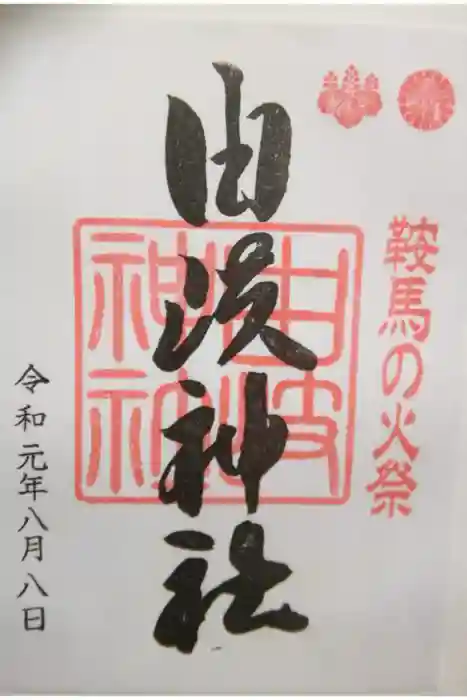 鞍馬の火祭
由岐神社
令和元年八月八日